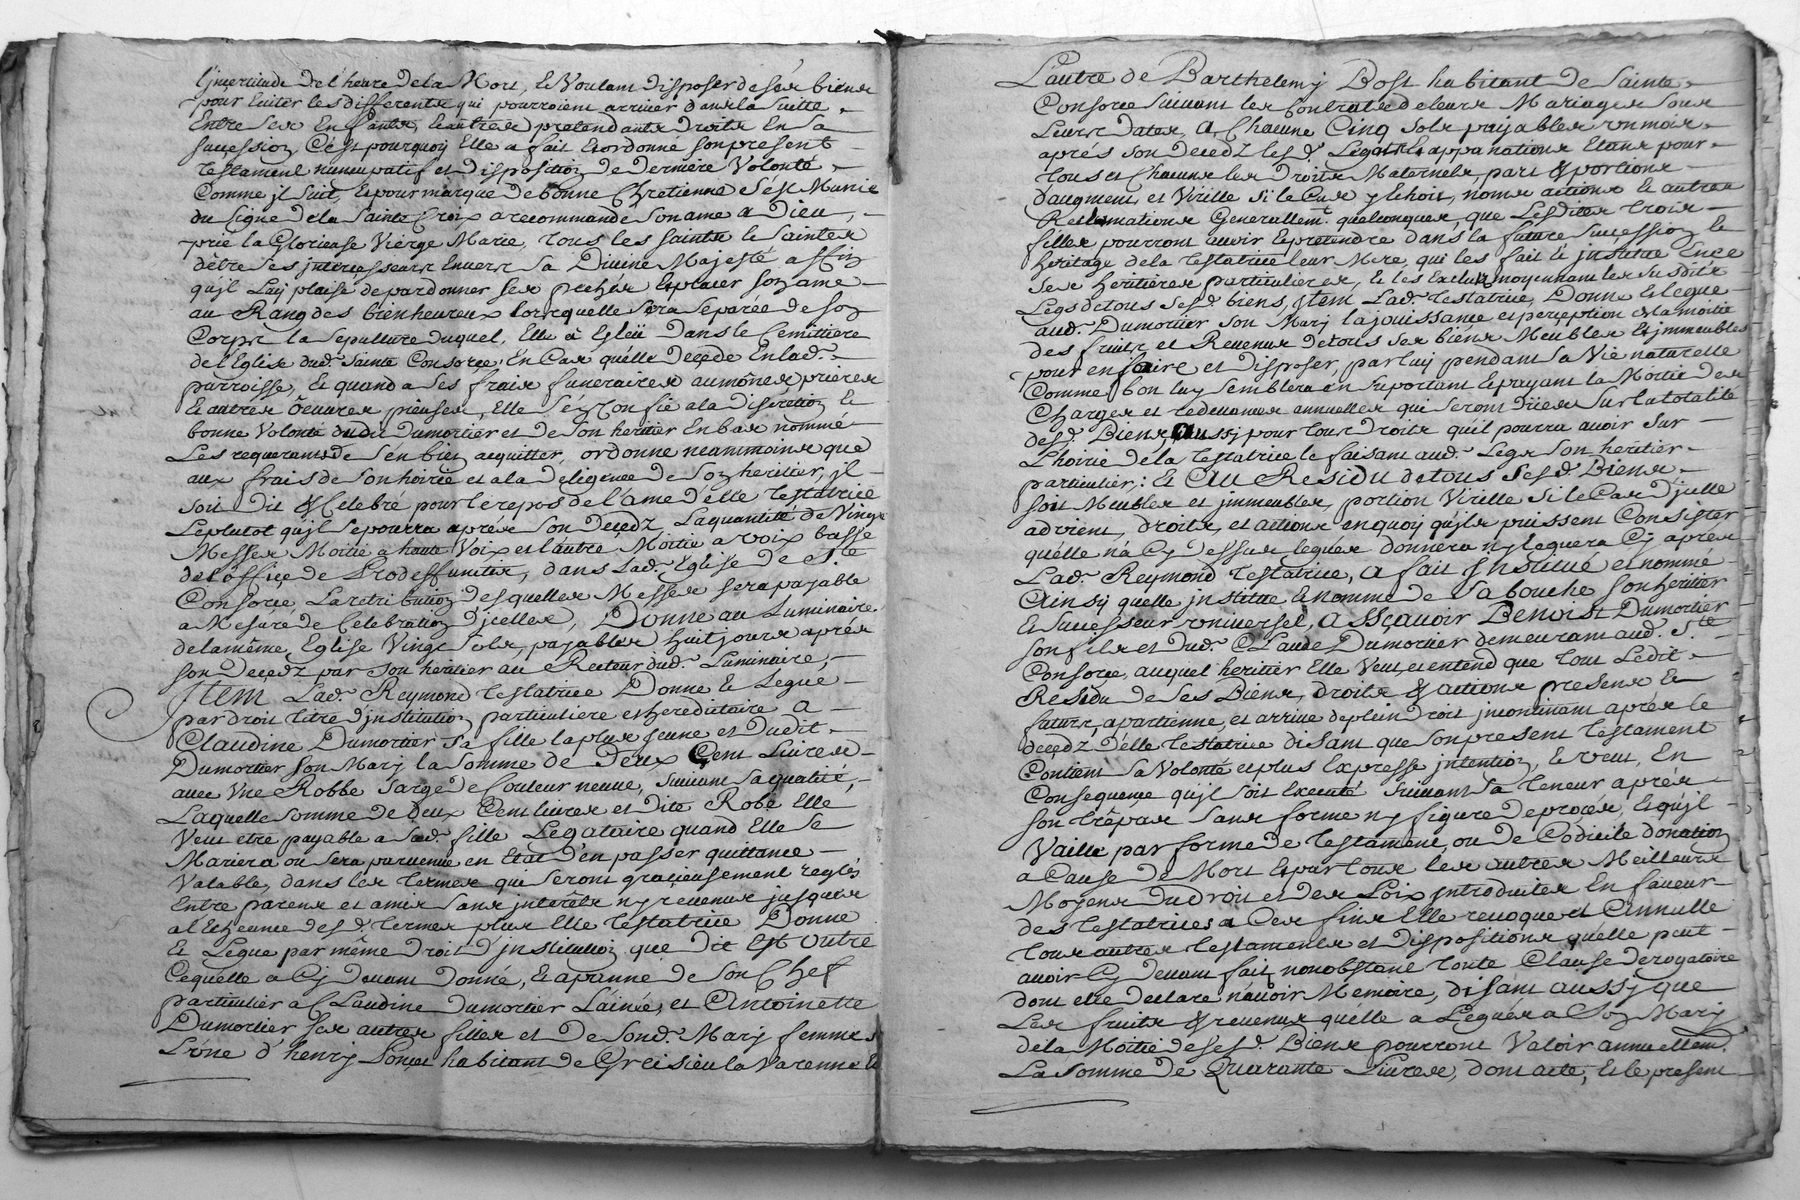 l'jncertitude de l'heure de la Mort, et Voulant disposer de ses biens
pour Eviter les differents qui pourroient arriver dans la suitte
Entre ses Enfants, Et autres pretendants Droits En sa
succession, C'est pourquoy Elle a fait Et ordonné son present
testament nuncupatif et disposition de derniere Volonté
Comme jl suit, Et pour marque de bonne Chretienne s'est Munie
du Signe de la Sainte Croix a recommandé son ame a Dieu,
prie la Glorieuse Vierge Marie, tous les saints Et saintes
d'être ses jntercesseurs Envers Sa Divine Majesté affin
qu'jl Luy plaise de pardonner ses pechés Et placer son ame
au Rang des bienheureux lorsquelle sera séparée de son
Corps la sepulture duquel, Elle à Esleü dans le Cemittiere
de l'Eglise dud. Sainte Consorce, En Cas quélle decede En lad.
parroisse, Et quand a ses frais funeraires aumônes prieres
Et autres Oeuvres pieuses, Elle s'én Confie a la discretion Et
bonne Volonté dudit Dumortier et de Son heritier En bas nommé
Les requerants de s'en bien acquitter, ordonne neammoins que
aux frais de Son hoirie et a la deligence de Son heritier, jl
soit Dit & Celebré pour le repos de l'ame d'élle testatrice
Le plutot qu'jl se pourra aprés Son Decedz La quantité de Vingt
Messes Moitié a haute Voix et l'autre Moitié a voix basse
de l'office de Prodeffunctis, dans Lad. Eglise de Ste
Consorce, La retribution desquelles Messes sera payable
a Mesure de Celebration d'jcelles, Donne au Luminaire
de la même Eglise Vingt Sols, payables huit jours aprés
son Decedz par Son heritier au Recteur dud. Luminaire,
Jtem Lad. Reymond testatrice Donne Et Legue
par droit titre d'jnstitution particuliere et hereditaire a
Claudine Dumortier sa fille la plus jeune et dudit
Dumortier Son Mary la somme de Deux Cent Livres
avec Une Robbe Sarge de Couleur neuve, suivant sa qualité,
Laquelle somme de deux Cent livres et dite Robe Elle
Veut etre payable a Sad. fille Legataire quand Elle se
Mariera ou sera parvenue en Etat d'en passer quittance
Valable, dans les termes qui seront gracieusement reglés
Entre parens et amis sans jnterêts ny revenus jusques
a l'Echeance desd. termes plus Elle testatrice Donne
Et Legue par même droit d'jnstitution que dit Est outre
Cequélle a Cy devant donné, Et apanné de Son Chef
particulier a Claudine Dumortier L'ainée, et Antoinette
Dumortier ses autres filles et de Sond. Mary femmes
L'úne d'henry habitant de Gresieu la Varenne Et
L'autre de Barthelemy Bost habitant de Sainte
Consorce suivant les Contrats de leurs Mariages sous
Leurs dates, A Chacune Cinq sols payables un mois
aprés son Decedz lesd. Legats Et appanations Etans pour
tous et Chacuns les droits Maternels, part & portions
d'augment, et Virille si le Cas y Echoit, noms actions Et autres
Reclamations Generallemt. quelconques que Lesdites trois
filles pourront avoir Et pretendre dans la future succession Et
heritage de la testatrice leur Mere, qui les fait Et jnstitue En ce
ses heritieres particulieres, Et les Exclut moyennant les susdits
Legs de tous sesd. biens, Jtem Lad. testatrice, Donne Et legue
aud. Dumortier Son Mary la jouissance et perception de la moitié
des fruits et Revenus de tous ses biens Meubles Et jmmeubles
pour en faire et disposer, par luy pendant sa Vie naturelle
Comme bon luy semblera en suportant Et payant la Moitié des
Charges et redevances annuelles qui seront dües sur la totalité
desd. Biens, Aussy pour tous droits qu'il pourra avoir sur
L'hoirie de la testatrice le faisant aud. Legs son heritier
particulier: Et Au Residu de tous Sesd. Biens
soit Meubles et jmmeubles, portion Virille Si le Cas d'jcelle
advient, droits, et actions en quoy qu'jls puissent Consister
quélle n'a Cy dessus legués donnera ny leguera Cy aprés
Lad. Reymond testatrice, a fait Jnstitué et nommé
Ainsy quélle jnstitue Et nomme de Sa bouche Son heritier
Et Successeur universel, Assçavoir Benoist Dumortier
son fils et dud. Claude Dumortier demeurant aud. Ste
Consorce, auquel heritier Elle Veut, et entend que tout Ledit
Residu de ses Biens, droits & actions presens Et
futurs, apartienne, et arrive de plein droit jncontinant aprés le
decedz d'élle testatrice disant que son present testament
Contient sa Volonté et plus Expresse jntention, Et veut, En
Consequence qu'jl soit Executé suivant sa teneur aprés
son trêpas sans forme ny figure de proces, Et qu'jl
Vaille par forme de testament, ou de Codicile donation
a Cause de Mort Et par tous les autres Meilleurs
Moyens du droit et des Loix jntroduites En faveur
des testatrices a Ces fins Elle revoque et Annulle
tous autres testaments et dispositions quélle peut
avoir Cy devant fait, nonobstant toute Clause derogatoire
dont elle declare n'avoir Memoire, disant aussy que
Les fruits & revenus quelle a Legués a Son Mary
de la Moitié de sesd. Biens pourront Valoir annuellemt.
La somme de Quarante Livres, dont acte, Et le present